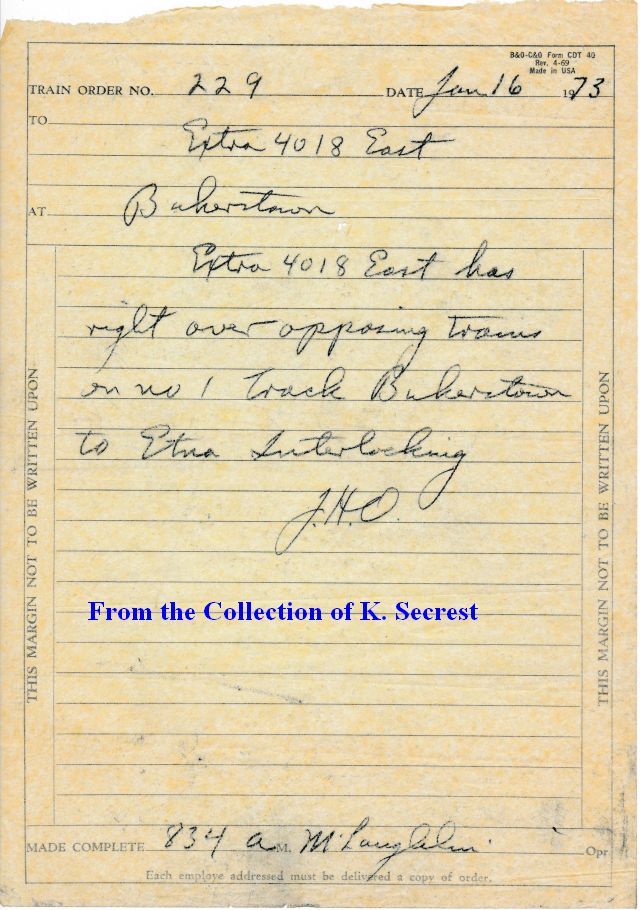 B&O-C&O Form CDT 40
Rev. 4-69
Made in USA
TRAIN ORDER NO. 229 DATE Jan 16 1973
TO Extra 4018 East
AT Bakerstown
Extra 4018 East has
right over opposing trains
on no 1 Track Bakerstown
to Etna Interlocking
J.H.O.
THIS MARGIN NOT TO BE WRITTEN UPON
THIS MARGIN NOT TO BE WRITTEN UPON
From the Collection of K. Secrest
MADE COMPLETE 834 a M. McLaughlin Opr
Each employe addressed must be delivered a copy of order.